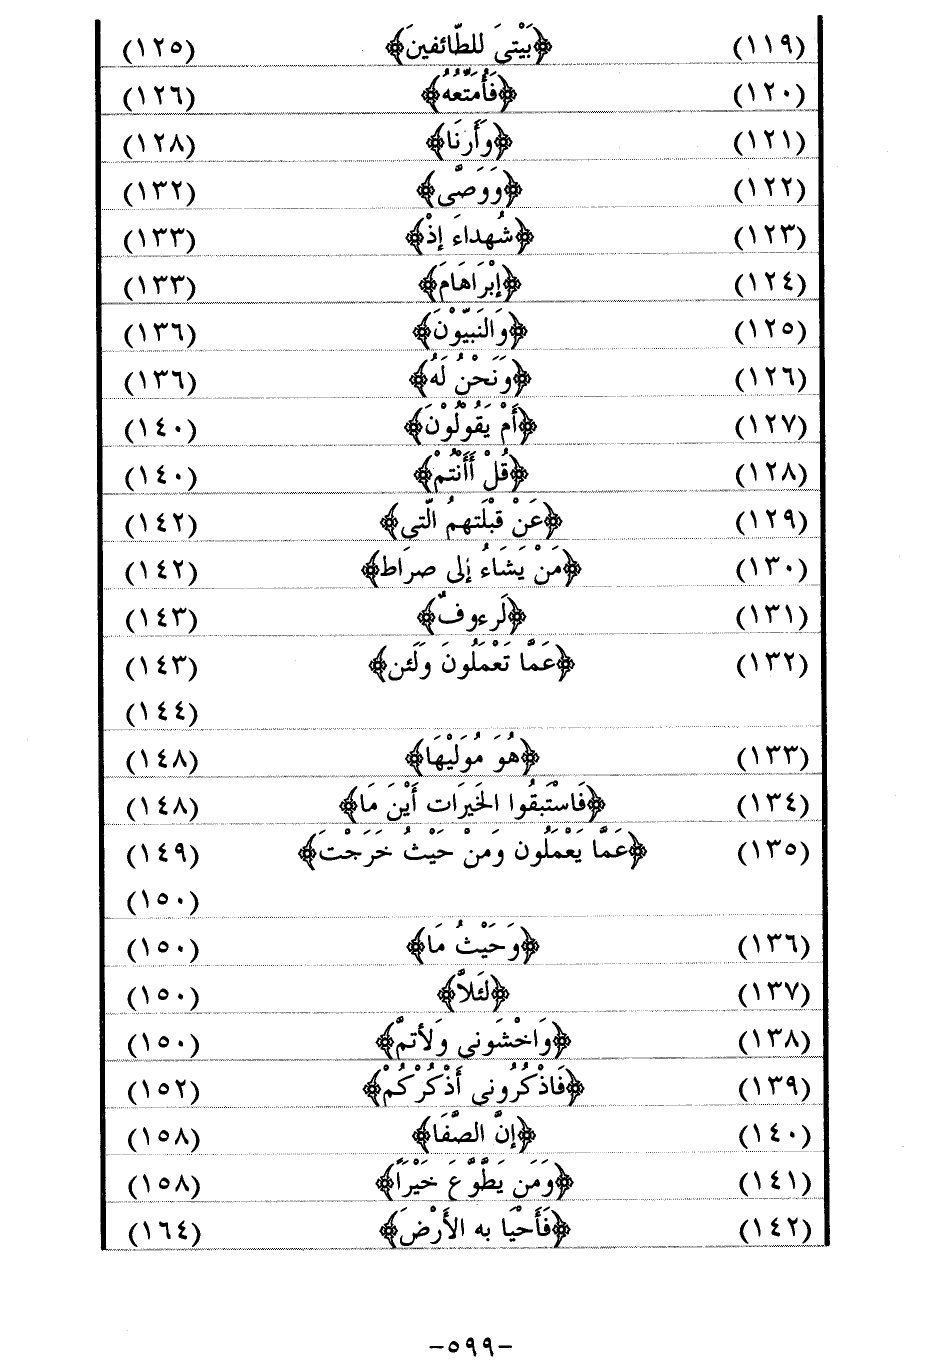 (١١٩) ﴿بَيْتِىَ للطّائفينَ﴾ (١٢٥)
(١٢٠) ﴿فَأُمَتِّعُهُ﴾ (١٢٦)
(١٢١) ﴿وَأَرنَا﴾ (١٢٨)
(١٢٢) ﴿وَوَصَّى﴾ (١٣٢)
(١٢٣) ﴿شُهداءَ إذْ﴾ (١٣٣)
(١٢٤) ﴿إبْرَاهَامَ﴾ (١٣٣)
(١٢٥) ﴿وَالنَبيّوْنَ﴾ (١٣٦)
(١٢٦) ﴿وَنَحْنُ لَهُ﴾ (١٣٦)
(١٢٧) ﴿أَمْ يَقُولُوْنَ﴾ (١٤٠)
(١٢٨) ﴿قُلْ أَأَنْتُمْ﴾ (١٤٠)
(١٢٩) ﴿عَنْ قبْلَتهمُ الّتى﴾ (١٤٢)
(١٣٠) ﴿مَنْ يَشَاءُ إلى صرَاط﴾ (١٤٢)
(١٣١) ﴿لَرءوفٌ﴾ (١٤٣)
(١٣٢) ﴿عَمَّا تَعْمَلُونَ وَلَئن﴾ (١٤٣)
(١٤٤)
(١٣٣) ﴿هُوَ مُوَليْهَا﴾ (١٤٨)
(١٣٤) ﴿فَاسْتَبقُوا الخَيرَات أَيْنَ مَا﴾ (١٤٨)
(١٣٥) ﴿عَمَّا يَعْمَلُون وَمنْ حَيْثُ خَرَجْتَ﴾ (١٤٩)
(١٥٠)
(١٣٦) ﴿وَحَيْثُ مَا﴾ (١٥٠)
(١٣٧) ﴿لئَلاَّ﴾ (١٥٠)
(١٣٨) ﴿وَاخْشَونى وَلأتمَّ﴾ (١٥٠)
(١٣٩) ﴿فَاذْكُرُونى أَذْكُرْكُمْ﴾ (١٥٢)
(١٤٠) ﴿إنَّ الصَّفَا﴾ (١٥٨)
(١٤١) ﴿وَمَن يَطَّوَّعَ خَيْرَاً﴾ (١٥٨)
(١٤٢) ﴿فَأَحْيَا به الأَرْضَ﴾ (١٦٤)
-٥٩٩-